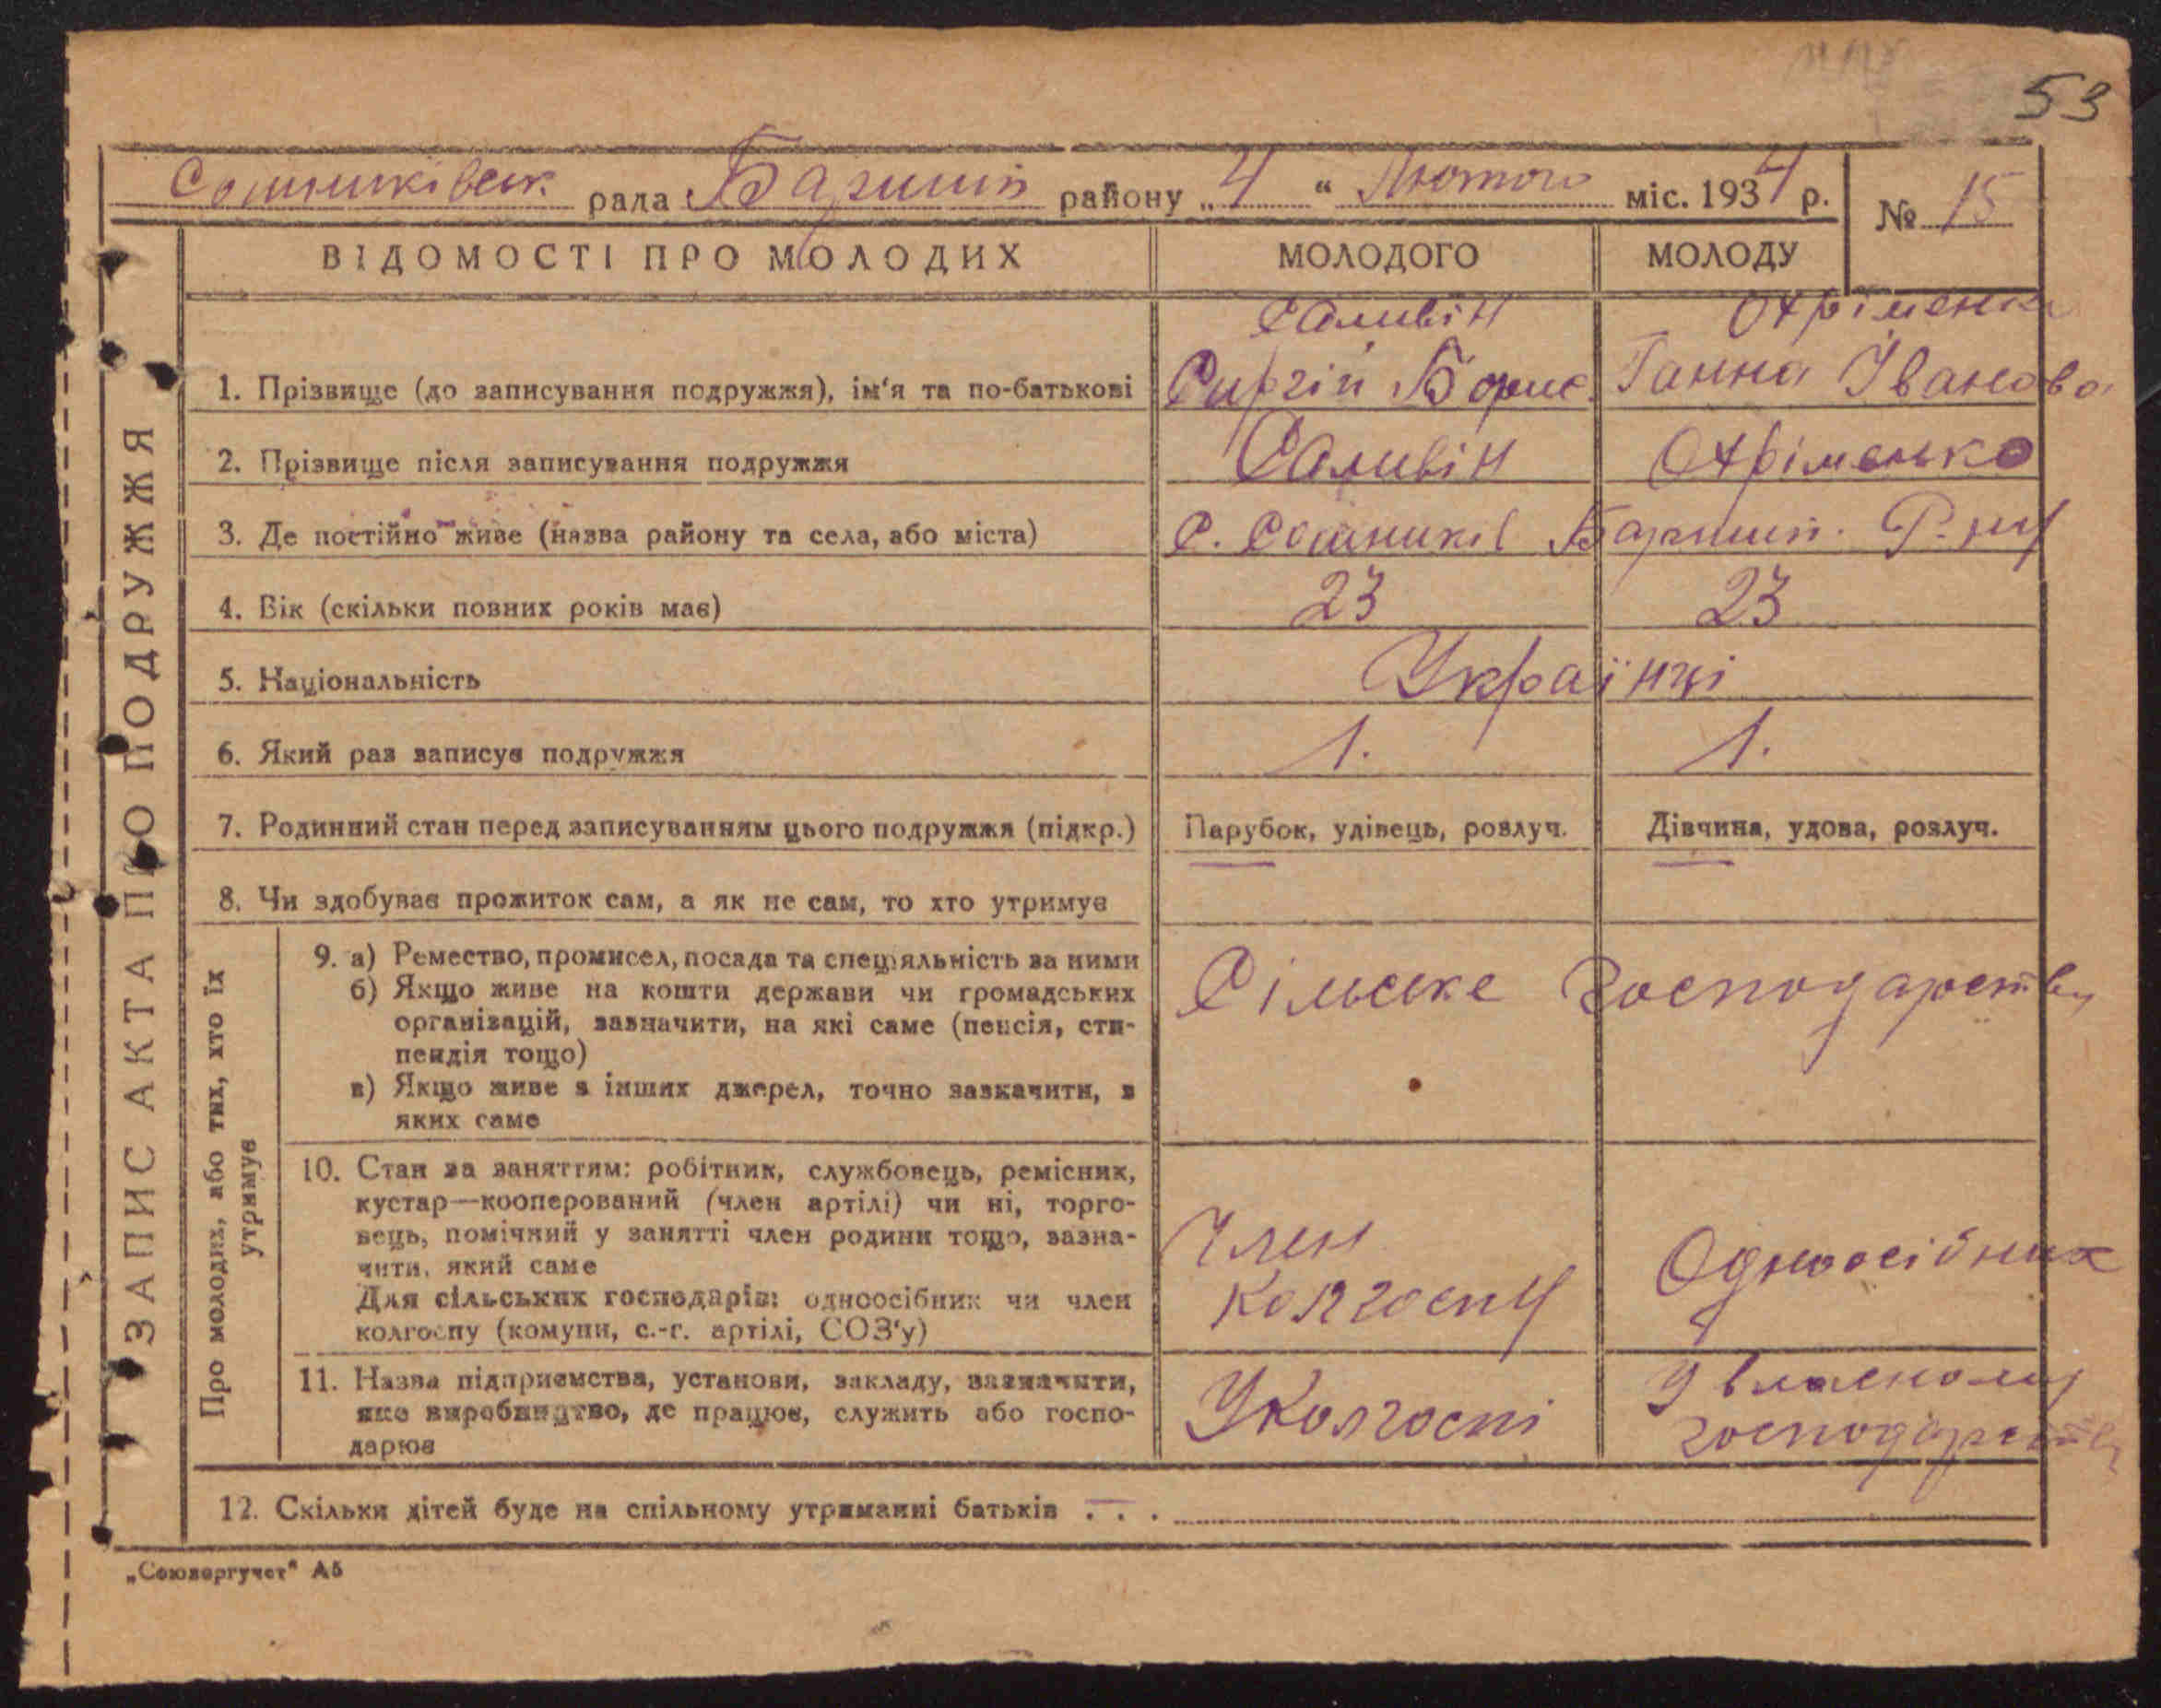 53
Сошниківськ рада Баришів району „4“ Лютого міс. 1934 р. № 15
ВІДОМОСТІ ПРО МОЛОДИХ МОЛОДОГО МОЛОДУ
Саливін Охріменко
1. Прізвище (до записування подружжя), ім‘я та по-батькові Сиргій Борис. Ганна Іванова
2. Прізвище після записування подружжя Саливін Охріменко
3. Де постійно живе (назва району та села, або міста) С. Сошників Баришів. Р-ну
4. Вік (скільки повних років має) 23 23
5. Національність Українці
6. Який раз записує подружжя 1. 1.
7. Родинний стан перед записуванням цього подружжя (підкр.) Парубок, удівець, розлуч. Дівчина, удова, розлуч.
8. Чи здобуває прожиток сам, а як не сам, то хто утримує
9. а) Ремество, промисел, посада та спеціяльність за ними Сільське господарство
б) Якщо живе на кошти держави чи громадських
організацій, зазначити, на які саме (пенсія, сти-
пендія тощо)
в) Якщо живе з інших джерел, точно зазначити, з
яких саме
10. Стан за заняттям: робітник, службовець, ремісник,
кустар—кооперований (член артілі) чи ні, торго-
вець, помічний у занятті член родини тощо, зазна-
чити, який саме
Для сільських господарів: одноосібник чи член
колгоспу (комуни, с.-г. артілі, СОЗ‘у)
Член
колгоспу
Одноосібник
11. Назва підприємства, установи, закладу, зазначити,
яке виробництво, де працює, служить або госпо-
дарює
У Колгоспі
У власному
господарстві
12. Скільки дітей буде на спільному утриманні батьків . . .
Про молодих, або тих, хто їх
утримує
ЗАПИС АКТА ПРО ПОДРУЖЖЯ
„Союзоргучет“ А5